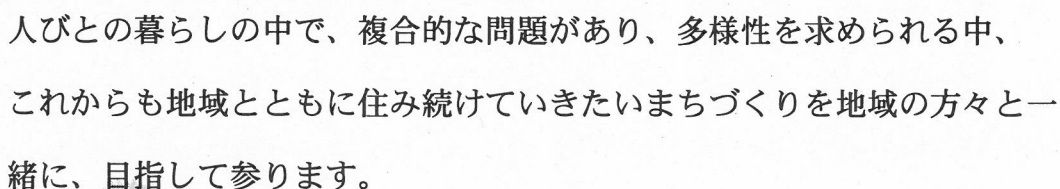 人びとの暮らしの中で、複合的な問題があり、多様性を求められる中、
これからも地域とともに住み続けていきたいまちづくりを地域の方々と一
緒に、目指して参ります。